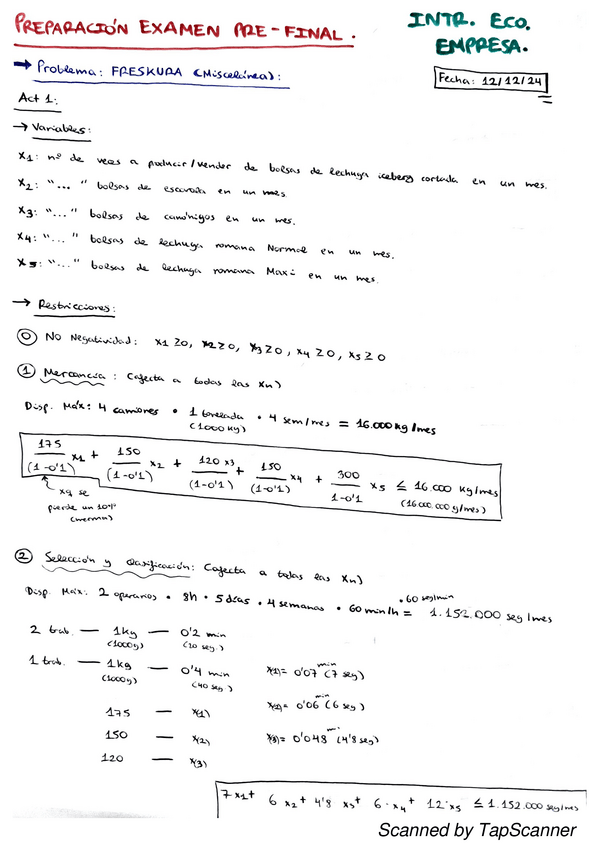 PREPARACIÓN EXAMEN PRE-FINAL.
INTR. ECO. EMPRESA.
→ Problema: FRESKURA (Miscelánea):
Fecha: 12/12/24
Act 1:
→ Variables:
X1: nº de veces a producir/vender de bolsas de lechuga iceberg cortada en un mes.
X2: "..." bolsas de escarola en un mes
X3: "..." bolsas de canónigos en un mes.
X4: "..." bolsas de lechuga romana Normal en un mes.
X5: "..." bolsas de lechuga romana Maxi en un mes.
→ Restricciones:
⓪ No Negatividad: x1 ≥0, x2 ≥0, x3 ≥0, x4 ≥0, x5 ≥0
① Mercancía: (afecta a todas las Xn)
Disp. Máx: 4 camiones • 1 tonelada • 4 sem/mes = 16.000 kg/mes
(1000 kg)
175/(1-0'1) x1 + 150/(1-0'1) x2 + 120 x3/(1-0'1) + 150/(1-0'1) x4 + 300/1-0'1 x5 ≤ 16.000 kg/mes
(16.000.000 g/mes)
xq se
pierde un 10%
(merma)
② Selección y clasificación: (afecta a todas las Xn)
Disp. Máx: 2 operarios • 8h • 5 días • 4 semanas • 60 min/h • 60 seg/min = 1.152.000 seg/mes
2 trab. — 1kg — 0'2 min
(1000g) (20 seg.)
1 trab. — 1kg — 0'4 min
(1000g) (40 seg.)
x(1)= 0'07 min (7 seg)
175 — x(1)
x(2)= 0'06 min (6 seg)
150 — x(2)
x(3)= 0'048 min (4'8 seg)
120 — x(3)
7 x1 + 6 x2 + 4'8 x3 + 6 · x4 + 12 · x5 ≤ 1.152.000 seg/mes
Scanned by TapScanner